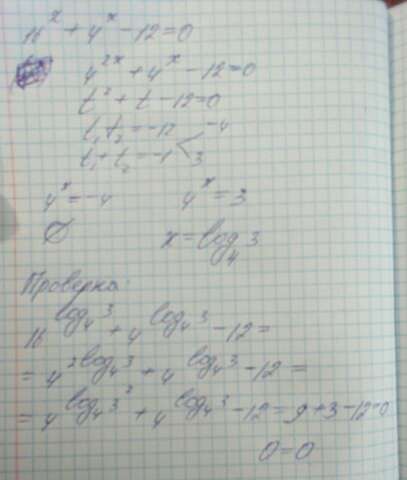 16^x + 4^x - 12 = 0
4^{2x} + 4^x - 12 = 0
t² + t - 12 = 0
t₁ t₂ = -12 < -4
t₁ + t₂ = -1 3
4^x = -4 4^x = 3
∅ x = log₄ 3
Проверка:
16^{log₄ 3} + 4^{log₄ 3} - 12 =
= 4^{2 log₄ 3} + 4^{log₄ 3} - 12 =
= 4^{log₄ 3²} + 4^{log₄ 3} - 12 = 9 + 3 - 12 = 0
0 = 0